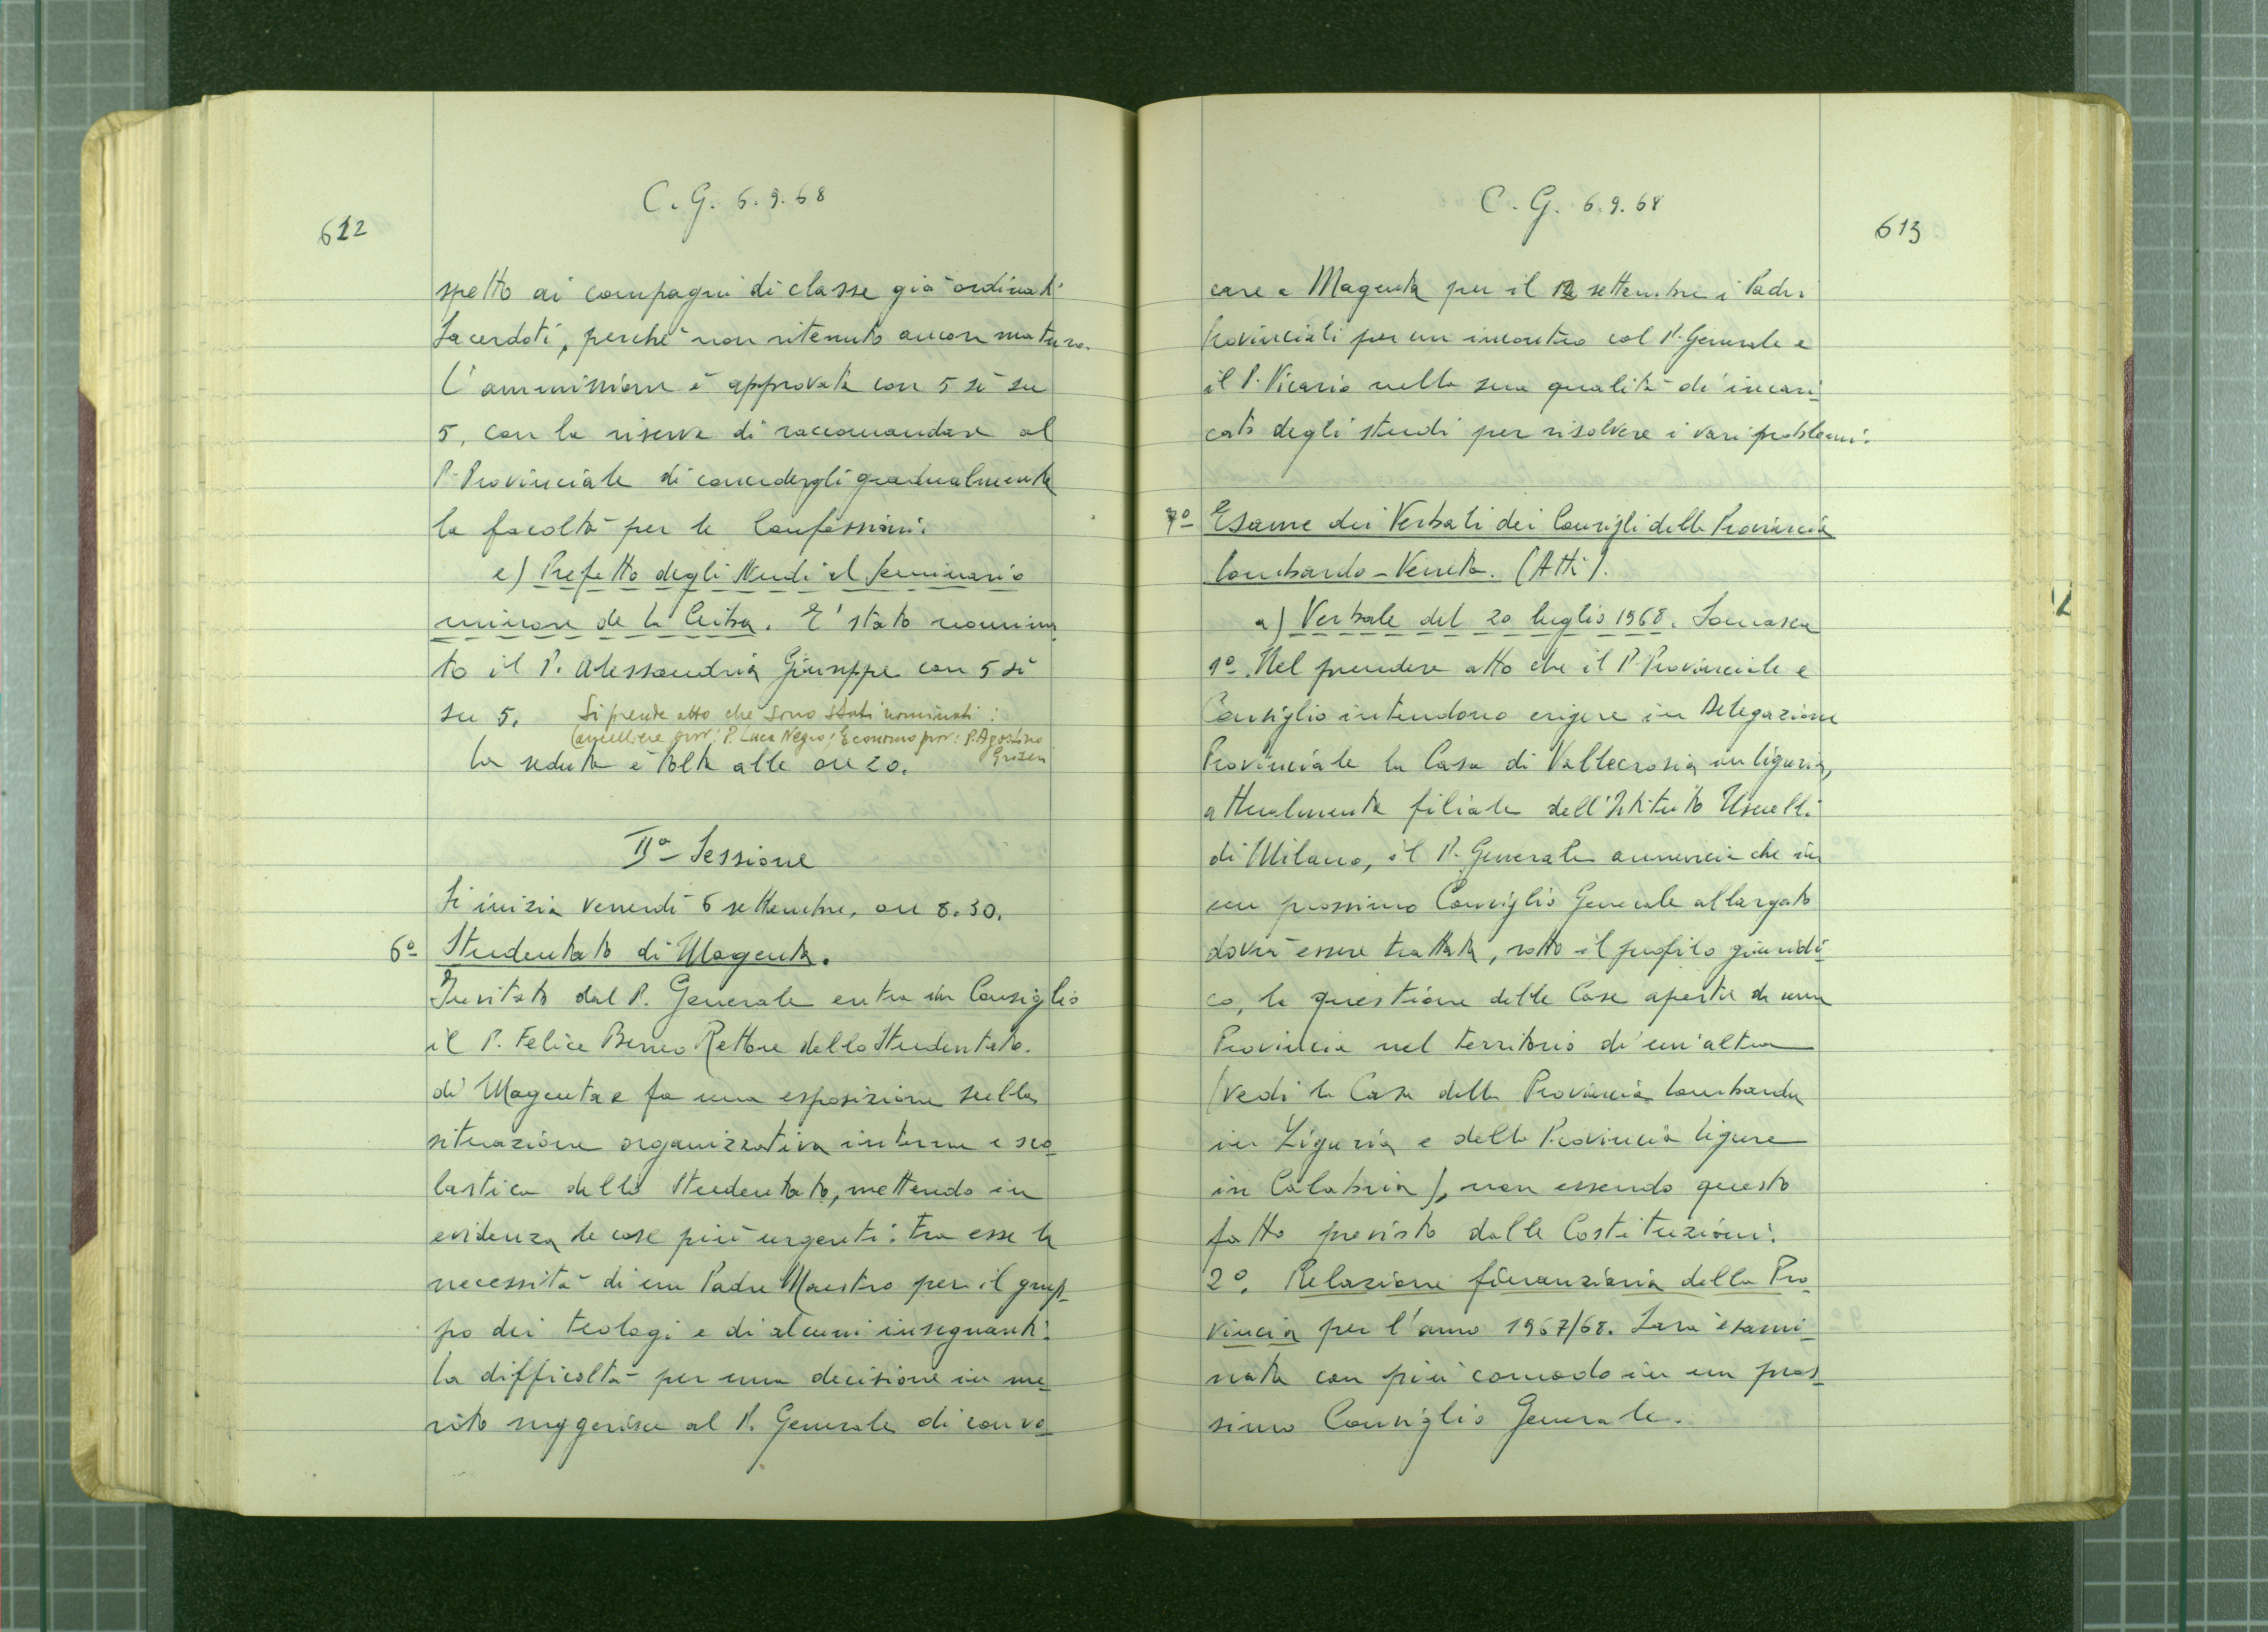 612
C. G. 6.9.68
spetto ai compagni di classe già ordinati
Sacerdoti, perchè non ritenuto ancora maturo.
L'ammissione è approvata con 5 sì su
5, con la riserva di raccomandare al
P. Provinciale di concedergli gradualmente
la facoltà per le Confessioni.
e) Prefetto degli Studi al Seminario
minore de la Ceiba. E' stato nomina
to il P. Alessandria Giuseppe con 5 sì
su 5. Si prende atto che sono stati nominati:
Cancelliere prov: P. Luca Negro; Economo prov: P. Agostino
Griseri
La seduta è tolta alle ore 20.
IIª Sessione
Si inizia venerdì 6 settembre, ore 8.30.
6º Studentato di Magenta.
Invitato dal P. Generale entra in Consiglio
il P. Felice Beneo Rettore dello Studentato
di Magenta e fa una esposizione sulla
situazione organizzativa interna e sco
lastica dello Studentato, mettendo in
evidenza le cose più urgenti: tra esse la
necessità di un Padre Maestro per il grup
po dei teologi e di alcuni insegnanti.
La difficoltà per una decisione in me
rito suggerisce al P. Generale di convo
C. G. 6.9.68
613
care a Magenta per il 12 settembre i Padri
Provinciali per un incontro col P. Generale e
il P. Vicario nella sua qualità di incari
cato degli studi per risolvere i vari problemi.
7º Esame dei Verbali dei Consigli della Provincia
Lombardo-Veneta. (Atti).
a) Verbale del 20 luglio 1968. Somasca
1º. Nel prendere atto che il P. Provinciale e
Consiglio intendono erigere in Delegazione
Provinciale la Casa di Vallecrosia in Liguria,
attualmente filiale dell'Istituto Usuelli
di Milano, il P. Generale annuncia che in
un prossimo Consiglio Generale allargato
dovrà essere trattata, sotto il profilo giuridi
co, la questione delle Case aperte da una
Provincia nel territorio di un'altra
(vedi le Case della Provincia Lombarda
in Liguria e della Provincia ligure
in Calabria), non essendo questo
fatto previsto dalle Costituzioni.
2º. Relazione finanziaria della Pro
vincia per l'anno 1967/68. Sarà esami
nata con più comodo in un pros
simo Consiglio Generale.